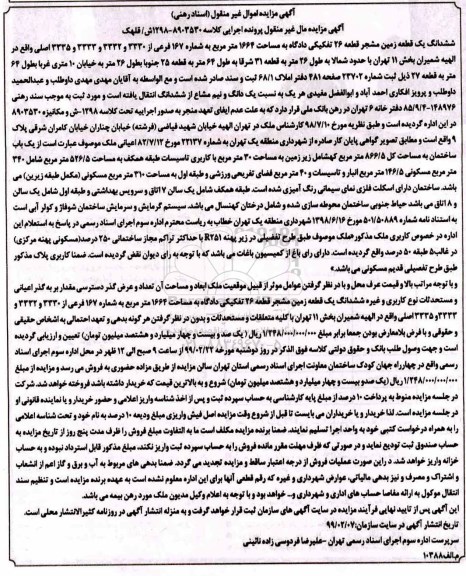 آگهی مزایده اموال غیر منقول (اسناد رهنی)
آگهی مزایده مال غیر منقول پرونده اجرایی کلاسه ۸۹۰۳۵۳۰-۱۲۹۸ش/ قلهک
ششدانگ یک قطعه زمین مشجر قطعه ۲۶ تفکیکی دادگاه به مساحت ۱۶۶۴ متر مربع به شماره ۱۶۷ فرعی از ۳۳۳۰ و ۳۳۳۲ و ۳۳۳۳ و ۳۳۳۵ اصلی واقع در
الهیه شمیران بخش ۱۱ تهران با حدود شمالا به طول ۲۶ متر به قطعه ۳۱ شرقا به طول ۶۴ متر به قطعه ۲۵ جنوبا بطول ۲۶ متر به خیابان ۱۰ متری غربا بطول ۶۴
متر به قطعه ۲۷ ذیل ثبت شماره ۲۳۷۰۲ صفحه ۴۸۱ دفتر املاک ۶۸/۱ ثبت و سند صادر شده است و مع الواسطه به آقایان مهدی مهدی داوطلب و عبدالحمید
داوطلب و پرویز افکاری احمد آباد و ابوالفضل مفیدی هر یک به نسبت یک دانگ و نیم مشاع از ششدانگ انتقال یافته است و مورد ثبت به موجب سند رهنی
۱۴۸۹۷۶-۸۵/۹/۴ دفتر خانه ۶ تهران در رهن بانک ملی قرار دارد که به علت عدم ایفای تعهد منجر به صدور اجراییه تحت کلاسه ۱۲۹۸-ش و مکانیزه ۸۹۰۳۵۳۰
در این اداره گردیده است و طبق نظریه مورخ ۹۸/۷/۱۰ کارشناس ملک در تهران الهیه خیابان شهید فیاضی (فرشته) خیابان چناران خیابان کامران شرقی پلاک
۹ واقع است و مطابق تصویر گواهی پایان کار صادره از شهرداری منطقه یک تهران به شماره ۲۳۱۳۷ مورخ ۸۲/۷/۱۲ اعیانی ملک موصوف عبارت است از یک باب
ساختمان به مساحت کل ۸۶۶/۵ متر مربع کهشامل زیر زمین به مساحت ۳۰ متر مربع با کاربری تاسیسات طبقه همکف به مساحت ۵۲۶/۵ متر مربع شامل ۳۴۰
متر مربع مسکونی ۱۴۶/۵ مترمربع انبار و تاسیسات و ۴۰ متر مربع فضای تفریحی ورزشی و طبقه اول به مساحت ۳۱۰ متر مربع مسکونی (مکمل طبقه زیرین) می
باشد. ساختمان دارای اسکلت فلزی نمای سیمانی رنگ آمیزی شده است. طبقه همکف شامل یک سالن ۷ اتاق و سرویس بهداشتی و طبقه اول شامل یک سالن
و ۸ اتاق می باشد حیاط جنوبی ساختمان محوطه سازی شده و شامل درختان کهنسال می باشد. سیستم گرمایش و سرمایش ساختمان شوفاژ و کولر آبی است
به استناد نامه شماره ۵۰۱/۵۰۸۸۹ مورخ ۱۳۹۸/۶/۱۶ شهرداری منطقه یک تهران خطاب به ریاست محترم اداره سوم اجرای اسناد رسمی در پاسخ به استعلام این
اداره در خصوص کاربری ملک مذکور«ملک موصوف طبق طرح تفصیلی در زیر پهنه R۲۵۱ با حداکثر تراکم مجاز ساختمانی ۲۵۰ درصد(مسکونی پهنه مرکزی)
در غالب۵ طبقه ۵۰ درصد واقع گردیده است. دارای رای باغ از کمیسیون باغات می باشد که با توجه به رای دیوان نقض گردیده است. ضمنا کاربری پلاک مذکور
طبق طرح تفصیلی قدیم مسکونی می باشد.»
و با توجه مراتب بالا و قیمت عرف محل و با در نظر گرفتن عوامل موثر از قبیل موقعیت ملک ابعاد و مساحت آن تعداد و عرض گذر دسترسی مقدار بر به گذر اعیانی
و مستحدثات نوع کاربری و غیره ششدانگ یک قطعه زمین مشجر قطعه ۲۶ تفکیکی دادگاه به مساحت ۱۶۶۴ متر مربع به شماره ۱۶۷ فرعی از ۳۳۳۰ و ۳۳۳۲ و
۳۳۳۳ و ۳۳۳۵ اصلی واقع در الهیه شمیران بخش ۱۱ تهران با کلیه متعلقات و مستحدثات و بدون در نظر گرفتن هر گونه بدهی و تعهد احتمالی به اشخاص حقیقی
و حقوقی و با فرض بلامعارض بودن جمعا برابر مبلغ ۱/۲۴۸/۰۰۰/۰۰۰/۰۰۰ ریال ( یک صد و بیست و چهار میلیارد و هشتصد میلیون تومان) تعیین و ارزیابی گردیده
است و جهت وصول طلب بانک و حقوق دولتی کلاسه فوق الذکر در روز دوشنبه مورخه ۹۹/۰۲/۲۲ از ساعت ۹ صبح الی ۱۲ ظهر در محل اداره سوم اجرای اسناد
رسمی واقع در چهارراه جهان کودک ساختمان معاونت اجرای اسناد رسمی استان تهران سالن مزایده از طریق مزاده حضوری به فروش می رسد و مزایده از مبلغ
۱/۲۴۸/۰۰۰/۰۰۰/۰۰۰ ریال (یک صدو بیست و چهار میلیارد و هشتصد میلیون تومان) شروع و به بالاترین قیمت که خریدار داشته باشد فروخته خواهد شد. شرکت
در جلسه مزایده منوط به پرداخت ۱۰ درصد از مبلغ پایه کارشناسی به حساب سپرده ثبت و پس از اخذ شناسه واریز اعلامی و حضور خریدار و یا نماینده قانونی او
در جلسه مزایده است. لذا خریدار و یا خریداران می بایست تا قبل از شروع وقت مزایده اصل فیش واریزی مبلغ ودیعه ۱۰ درصد به نام خود و تحت شناسه اعلامی
را به همراه درخواست کتبی خود به واحد اجرا تسلیم نمایند. ضمنا برنده مزایده مکلف است ما به التفاوت مبلغ فروش را ظرف مدت پنج روز از تاریخ مزایده به
حساب صندوق ثبت تودیع نماید و در صورتی که ظرف مهلت مقرر مانده فروش را به حساب سپرده ثبت واریز نکند، مبلغ مذکور قابل استرداد نبوده و به حساب
خزانه واریز خواهد شد. د راین صورت عملیات فروش از درجه اعتبار ساقط و مزایده تجدید می گردد. ضمنا بدهی های مربوط به آب و برق و گاز اعم از انشعاب
و اشتراک و مصرف و نیز بدهی مالیاتی، عوارض شهرداری و غیره که رقم قطعی آنها برای این اداره معلوم نشده است به عهده برنده مزایده است و تنظیم سند
انتقال موکول به ارائه مفاصا حساب های اداری و شهرداری و... خواهد بود و با توجه به اعلام وکیل مدیون ملک مورد رهن بیمه می باشد.
این آگهی پس از تایید نهایی فرآیند مزایده در سایت آگهی های سازمان ثبت قرار خواهد گرفت و به منزله انتشار آگهی در روزنامه کثیرالانتشار محلی است.
تاریخ انتشار آگهی در سایت سازمان:۹۹/۰۲/۰۷
سرپرست اداره سوم اجرای اسناد رسمی تهران -علیرضا فردوسی زاده نائینی
م.الف۱۰۳۸۸